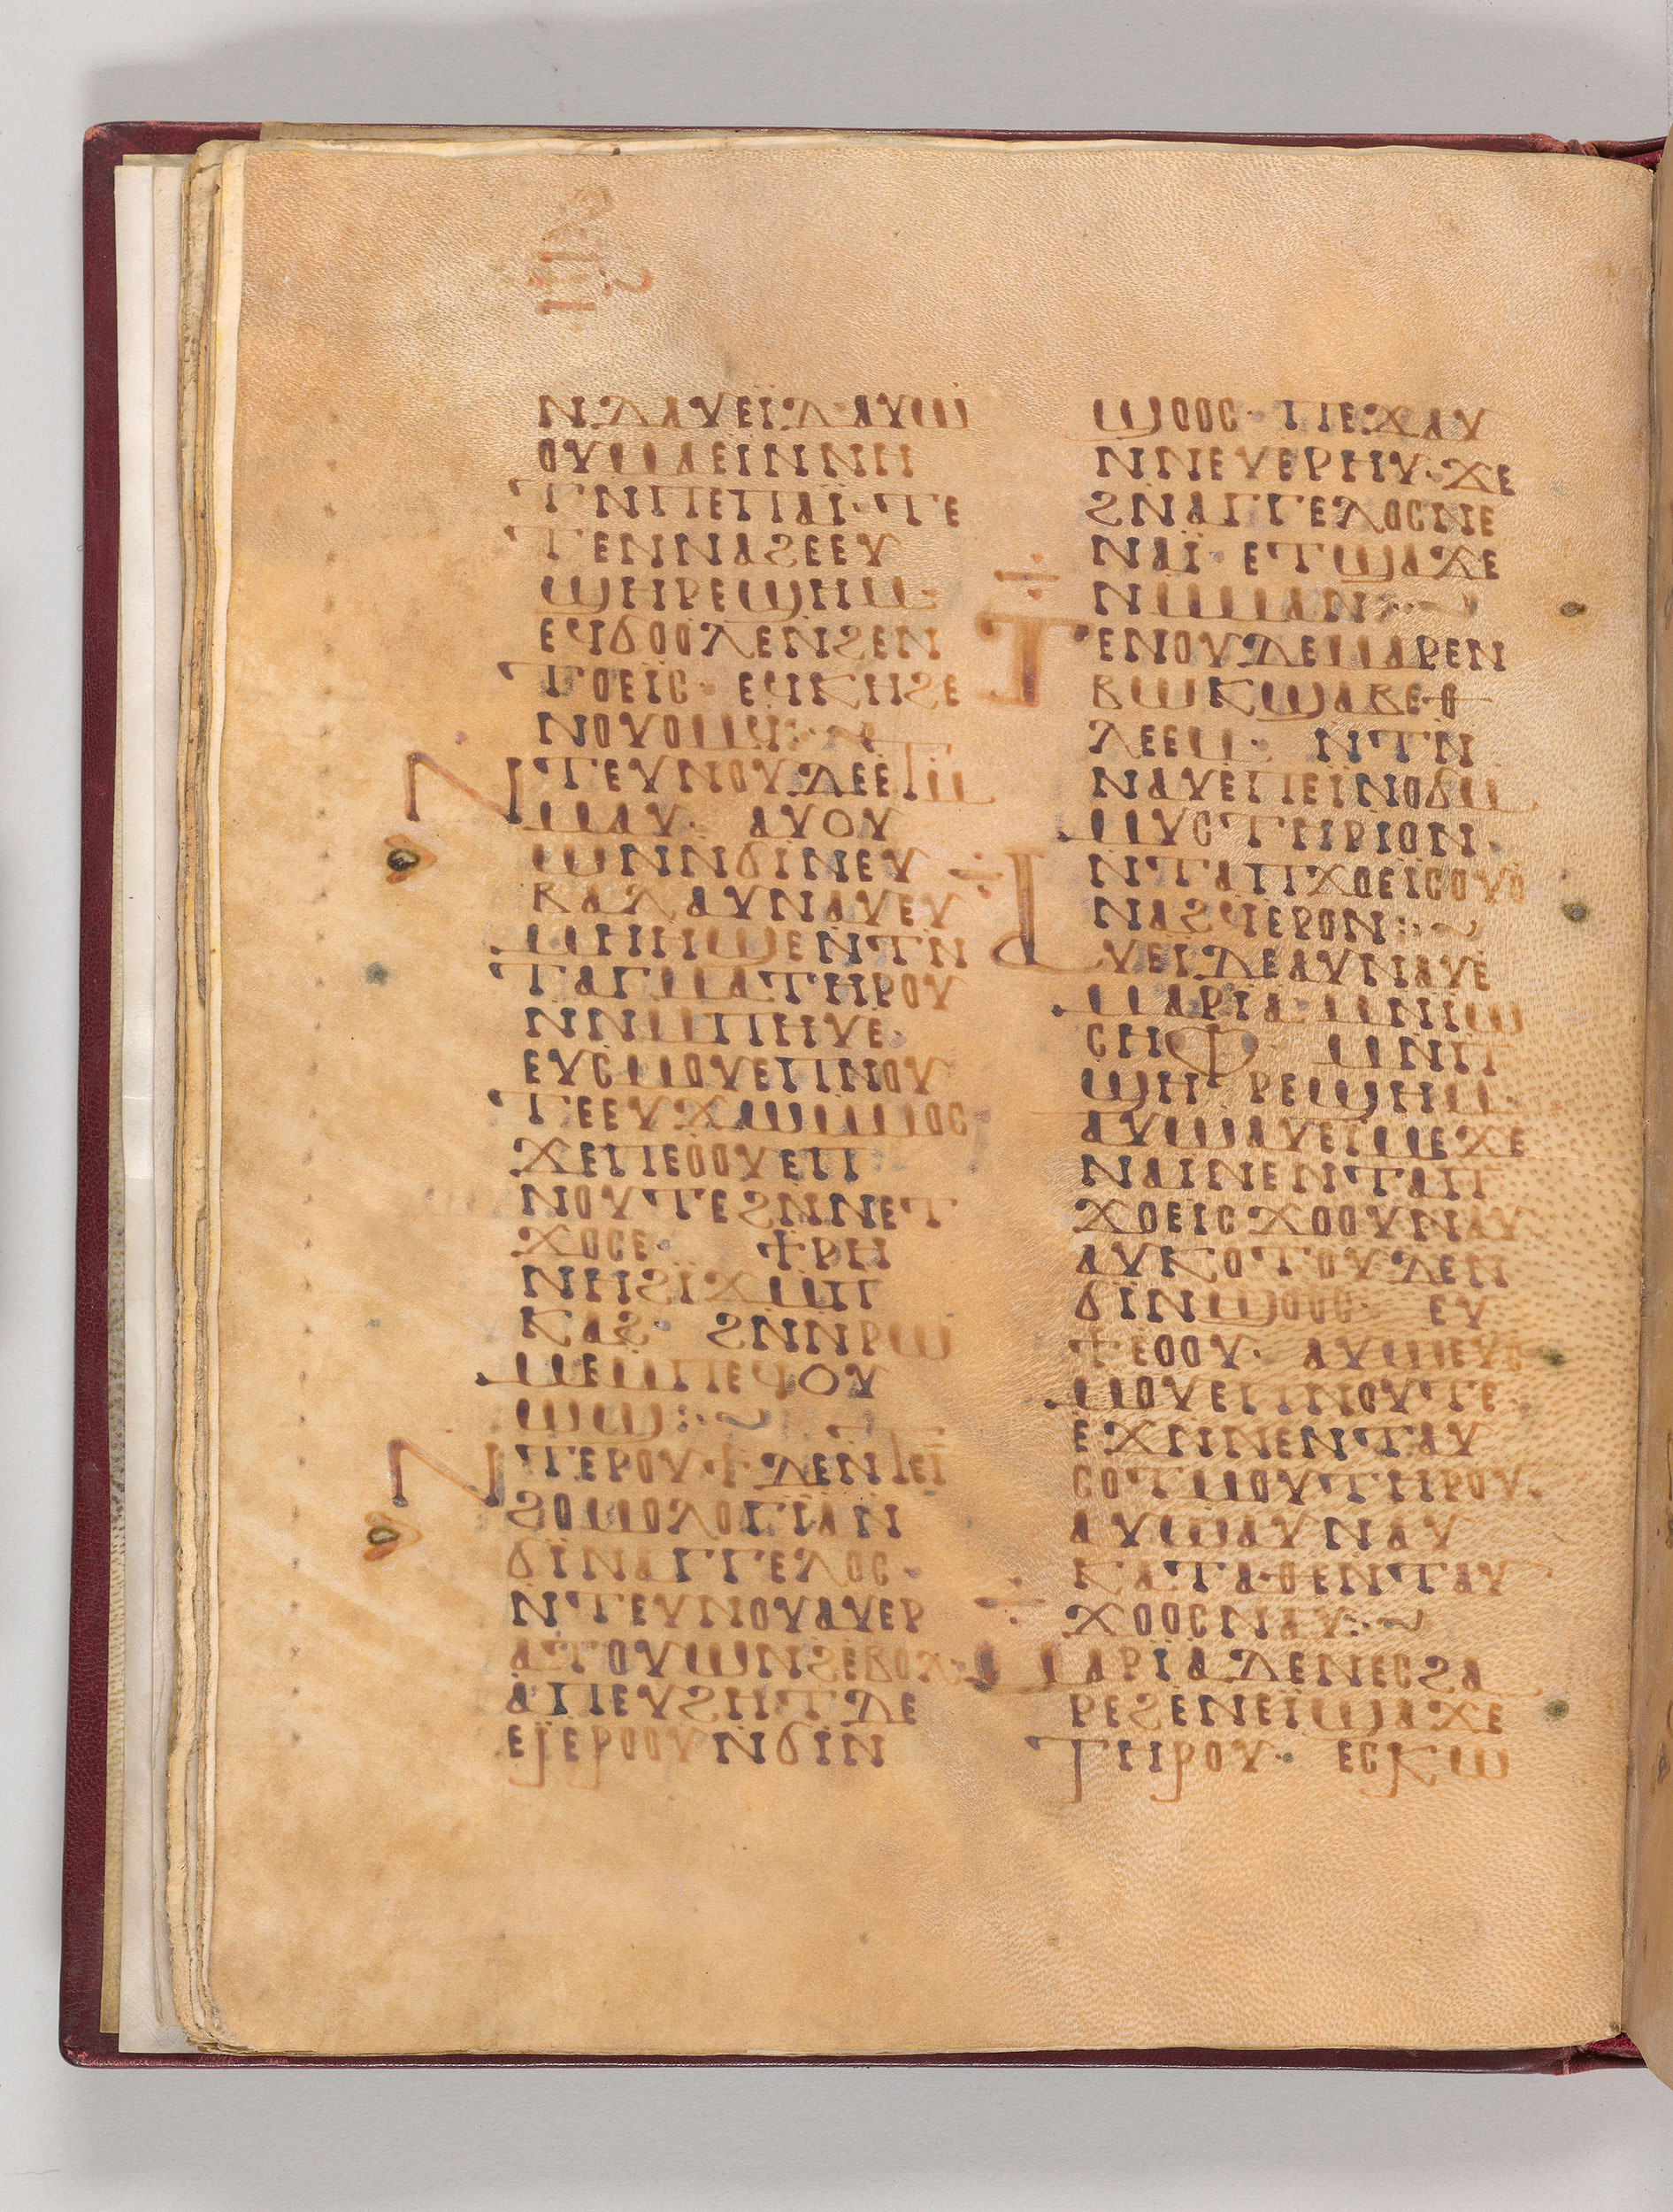 ⲛⲇⲁⲩⲉⲓⲇ ⲁⲩⲱ
ⲟⲩⲙⲁⲉⲓⲛ ⲛⲏ
ⲧⲛ ⲡⲉ ⲡⲁⲓ̈· ⲧⲉ
ⲧⲉⲛⲛⲁϩⲉ ⲉⲩ
ϣⲏⲣⲉ ϣⲏⲙ·
ⲉϥϭⲟⲟⲗⲉ ⲛϩⲉⲛ
ⲧⲟⲉⲓ̈ⲥ· ⲉϥⲕⲏ ϩⲉ
ⲛⲟⲩⲟⲙϥ:·~
ⲛⲧⲉⲩⲛⲟⲩ ⲇⲉ ⲉⲧⲙ
ⲙⲁⲩ· ⲁⲩⲟⲩ
ⲱⲛ ⲛϭⲓ ⲛⲉⲩ
ⲃⲁⲗ ⲁⲩⲛⲁⲩ ⲉⲩ
ⲙⲏⲏϣⲉ ⲛⲧⲛ
ⲧⲁⲅⲙⲁ ⲧⲏⲣⲟⲩ
ⲛⲙⲡⲏⲩⲉ·
ⲉⲩⲥⲙⲟⲩ ⲉⲡⲛⲟⲩ
ⲧⲉ ⲉⲩϫⲱ ⲙⲙⲟⲥ
ϫⲉ ⲡⲉⲟⲟⲩ ⲉⲡ
ⲛⲟⲩⲧⲉ ϩⲛ ⲛⲉⲧ
ϫⲟⲥⲉ· ϯⲣⲏ
ⲛⲏ ϩⲓϫⲙ ⲡ
ⲕⲁϩ· ϩⲛ ⲛⲣⲱ
ⲙⲉ ⲙⲡⲉϥⲟⲩ
ⲱϣ:·~
ⲛⲧⲉⲣⲟⲩϯ ⲇⲉ ⲛⲧⲉⲓ̈
ϩⲟⲙⲟⲗⲟⲅⲓ̈ⲁ ⲛ
ϭⲓ ⲛⲁⲅⲅⲉⲗⲟⲥ·
ⲛⲧⲉⲩⲛⲟⲩ ⲁⲩⲉⲣ
ⲁⲧⲟⲩⲱⲛϩ ⲉⲃⲟⲗ·
ⲁⲡⲉⲩϩⲏⲧ ⲇⲉ
ⲉⲓ ⲉⲣⲟⲟⲩ ⲛϭⲓ ⲛ
ϣⲟⲟⲥ· ⲡⲉϫⲁⲩ
ⲛⲛⲉⲩⲉⲣⲏⲩ· ϫⲉ
ϩⲛⲁⲅⲅⲉⲗⲟⲥ ⲛⲉ
ⲛⲁⲓ̈· ⲉⲧϣⲁϫⲉ
ⲛⲙⲙⲁⲛ:·~
ⲧⲉⲛⲟⲩ ⲇⲉ ⲙⲁⲣⲉⲛ
ⲃⲱⲕ ϣⲁ ⲃⲉⲑ
ⲗⲉⲉⲙ· ⲛⲧⲛ
ⲛⲁⲩ ⲉⲡⲉⲓ̈ⲛⲟϭ ⲙ
ⲙⲩⲥⲧⲏⲣⲓⲟⲛ·
ⲛⲧⲁ ⲡϫⲟⲉⲓ̈ⲥ ⲟⲩⲟ
ⲛⲁϩϥ ⲉⲣⲟⲛ:·~
ⲁⲩⲉⲓ ⲇⲉ ⲁⲩⲛⲁⲩ ⲉ
ⲙⲁⲣⲓ̈ⲁ ⲙⲛ ⲓ̈ⲱ
ⲥⲏⲫ· ⲙⲛ ⲡ
ϣⲏⲣⲉ ϣⲏⲙ·
ⲁⲩⲱ ⲁⲩⲉⲓⲙⲉ ϫⲉ
ⲛⲁⲓ ⲛⲉⲛⲧⲁ ⲡ
ϫⲟⲉⲓⲥ ϫⲟⲟⲩ ⲛⲁⲩ·
ⲁⲩⲕⲟⲧⲟⲩ ⲇⲉ ⲛ
ϭⲓ ⲛϣⲟⲟⲥ· ⲉⲩ
ϯⲉⲟⲟⲩ· ⲁⲩⲱ ⲉⲩⲥ
ⲙⲟⲩ ⲉⲡⲛⲟⲩⲧⲉ·
ⲉϫⲛ ⲛⲉⲛⲧⲁⲩ
ⲥⲟⲧⲙⲟⲩ ⲧⲏⲣⲟⲩ·
ⲁⲩⲱ ⲁⲩⲛⲁⲩ
ⲕⲁⲧⲁ ⲑⲉ ⲛⲧⲁⲩ
ϫⲟⲟⲥ ⲛⲁⲩ:·~
ⲙⲁⲣⲓ̈ⲁ ⲇⲉ ⲛⲉⲥϩⲁ
ⲣⲉϩ ⲉⲛⲉⲓ̈ϣⲁϫⲉ
ⲧⲏⲣⲟⲩ· ⲉⲥⲕⲱ